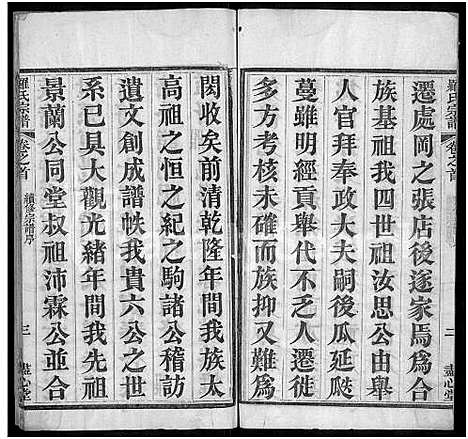 羅氏宗譜
卷之首
二
盡心堂
遷處岡之張店後遂家焉為合
族基祖我四世祖汝思公由舉
人官拜奉政大夫嗣後瓜瓞延
蔓雖明經貢舉代不乏人遷徙
多方考核未確而合族抑又難為
閎收矣前清乾隆年間我族太
高祖之恒紀之駒諸公稽訪
遺文創成譜帙我貴六公之世
系已具大觀光緒年間我先祖
景蘭公同堂叔祖沛霖公並合
羅氏宗譜
卷之首
續修宗譜序
三
盡心堂